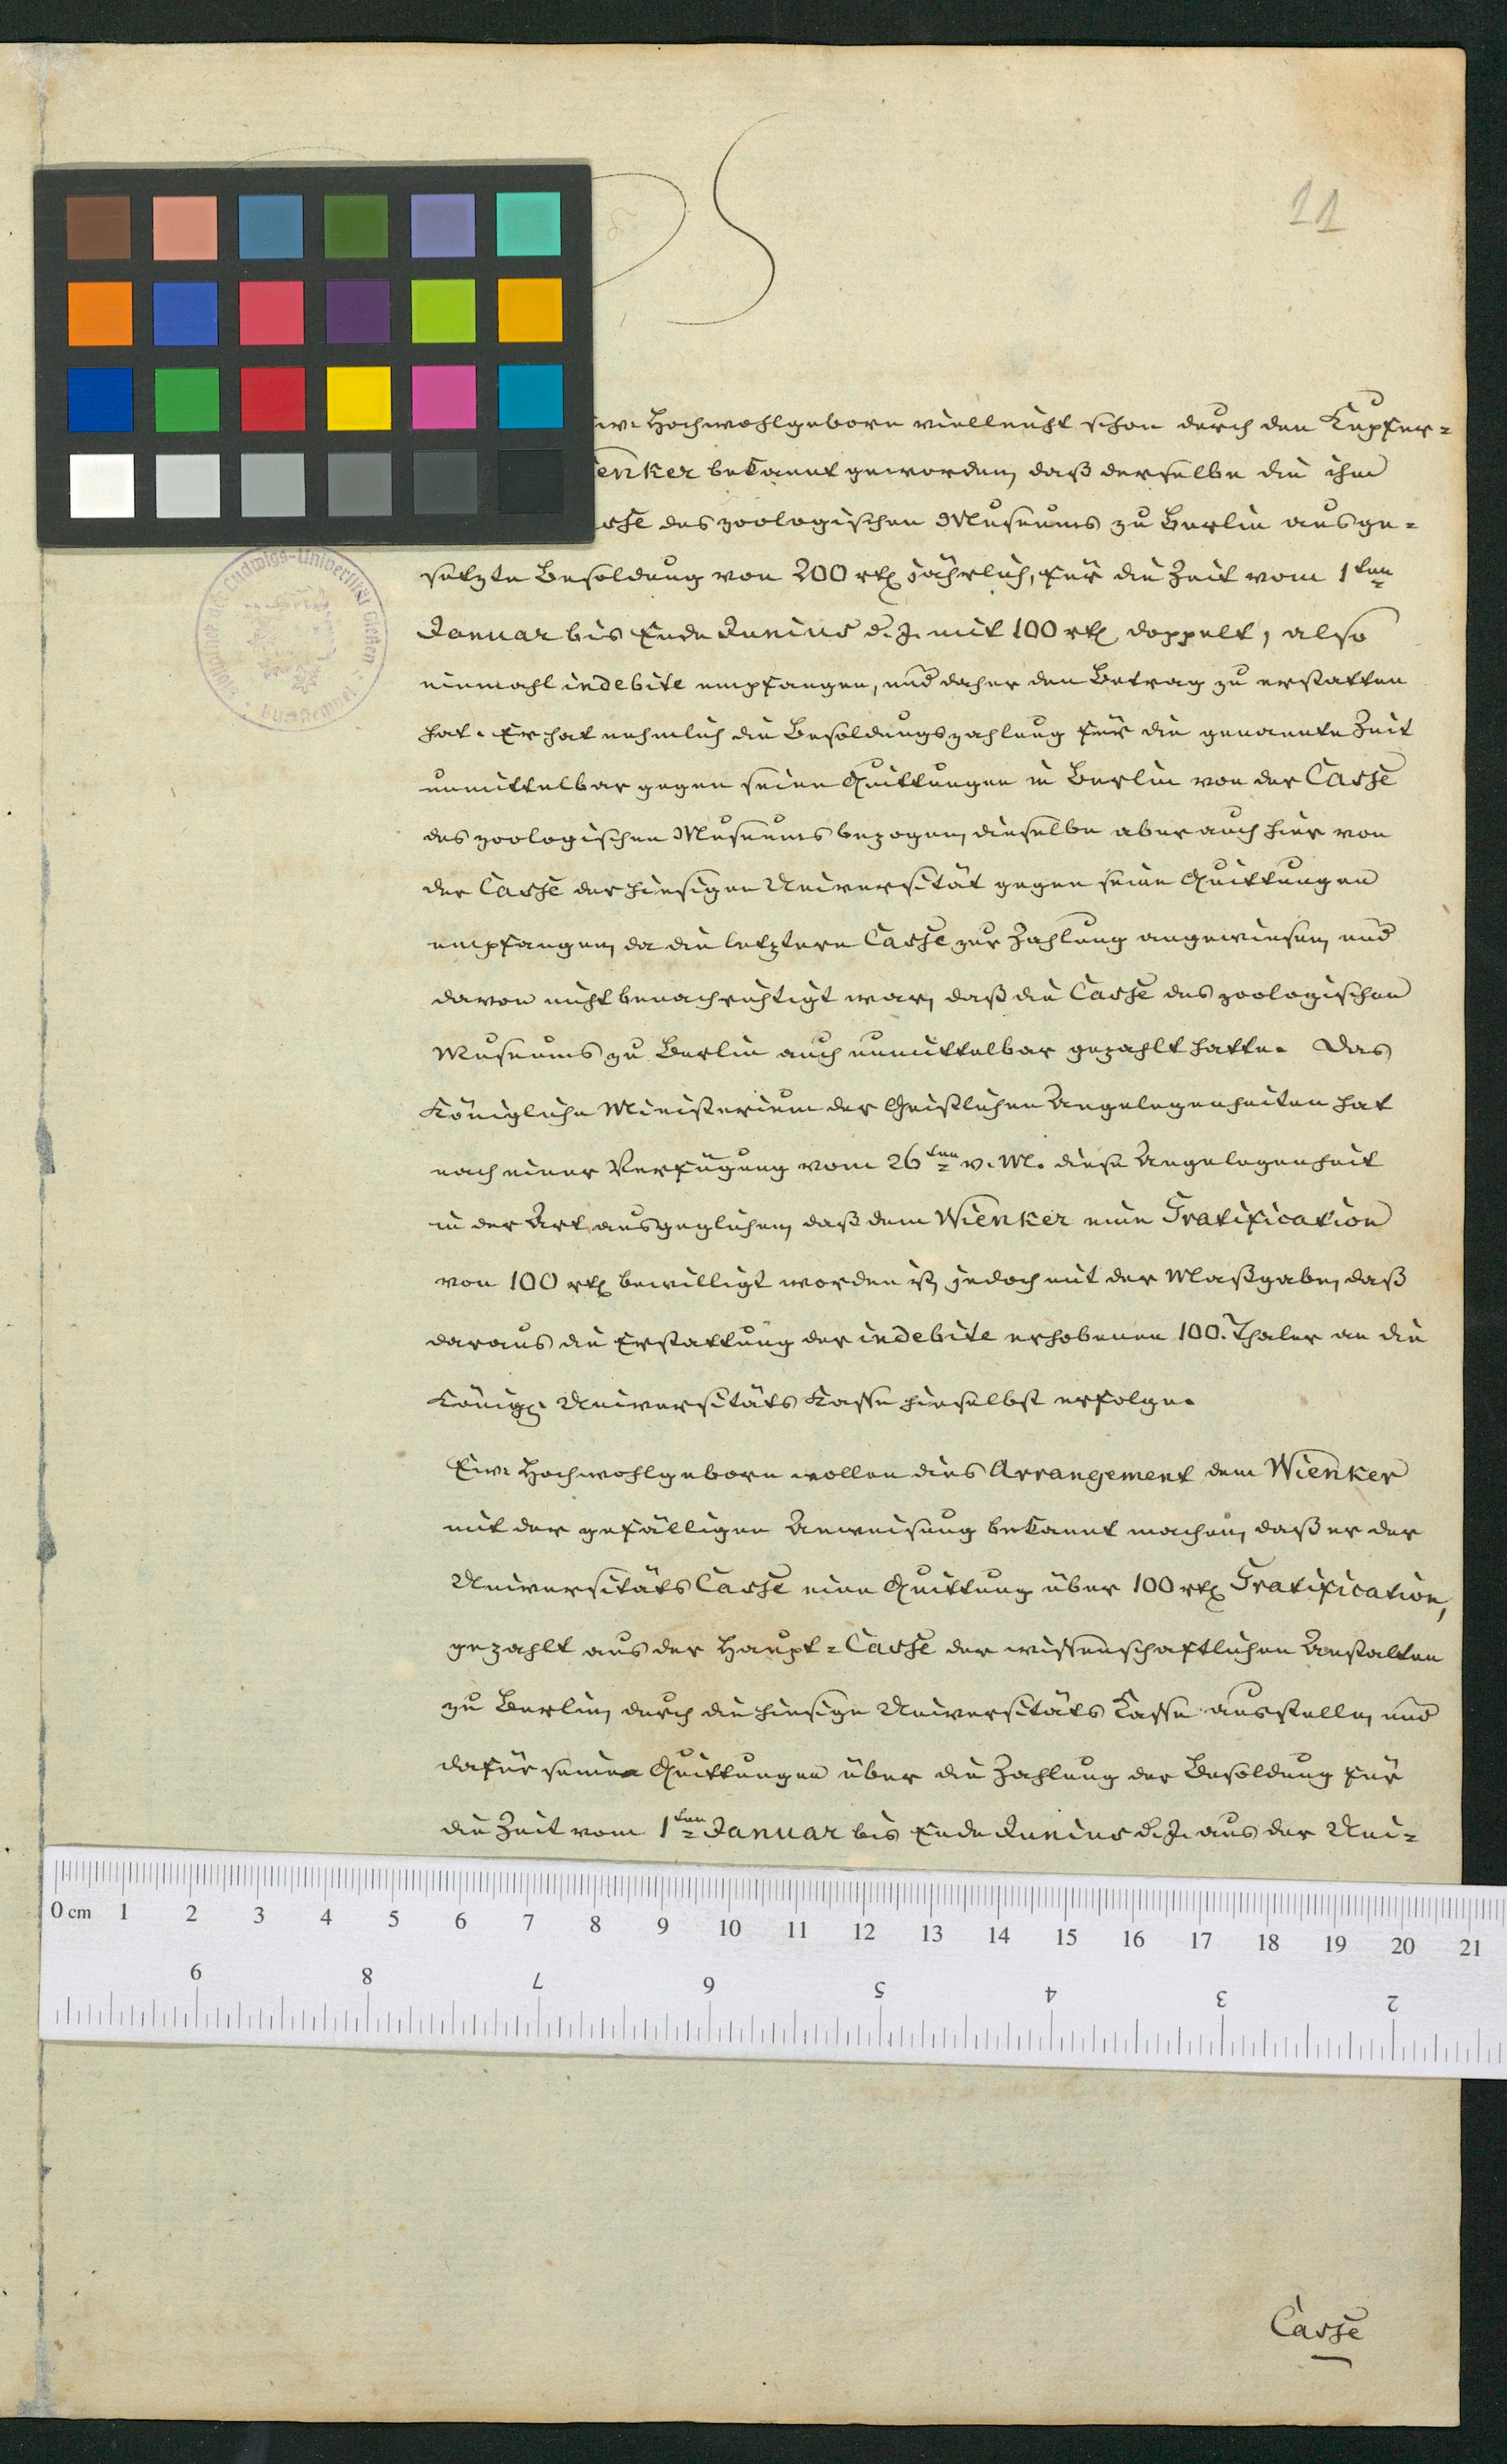 11
Ew. Hochwohlgeborn vielleicht schon durch den Kupfer=
enker bekannt geworden, daß derselbe die ihm
asse des zoologischen Museums zu Berlin ausge=
setzte Besoldung von 200 rtl jährlich, für die Zeit vom 1ten
Januar bis Ende Junius d. J. mit 100 rtl doppelt, also
einmahl indebite empfangen, und daher den Betrag zu erstatten
hat. Er hat nehmlich die Besoldungszahlung für die genannte Zeit
unmittelbar gegen seine Quittungen in Berlin von der Casse
des zoologischen Museums bezogen, dieselbe aber auch hier von
der Casse der hiesigen Universität gegen seine Quittungen
empfangen, da die letztere Casse zur Zahlung angewiesen, und
davon nicht benachrichtigt war, daß die Casse des zoologischen
Museums zu Berlin auch unmittelbar gezahlt hatte. Das
Königliche Ministerium der Geistlichen Angelegenheiten hat
nach einer Verfügung vom 26ten v. M. diese Angelegenheit
in der Art ausgeglichen, daß dem Wienker eine Gratification
von 100 rtl bewilligt worden ist, jedoch mit der Maßgabe, daß
daraus die Erstattung der indebite erhobenen 100. Thaler an die
Königl. Universitäts Kasse hieselbst erfolge.
Ew. Hochwohlgeborn wollen dies Arrangement dem Wienker
mit der gefälligen Anweisung bekannt machen, daß er der
Universitäts Casse eine Quittung über 100 rtl Gratification,
gezahlt aus der Haupt=Casse der wissenschaftlichen Anstalten
zu Berlin, durch die hiesige Universitäts Kasse ausstelle, und
dafür seine Quittungen über die Zahlung der Besoldung für
die Zeit vom 1ten Januar bis Ende Junius d. J. aus der Uni=
0 cm 1 2 3 4 5 6 7 8 9 10 11 12 13 14 15 16 17 18 19 20 21
9 8 7 6 5 4 3 2
Casse